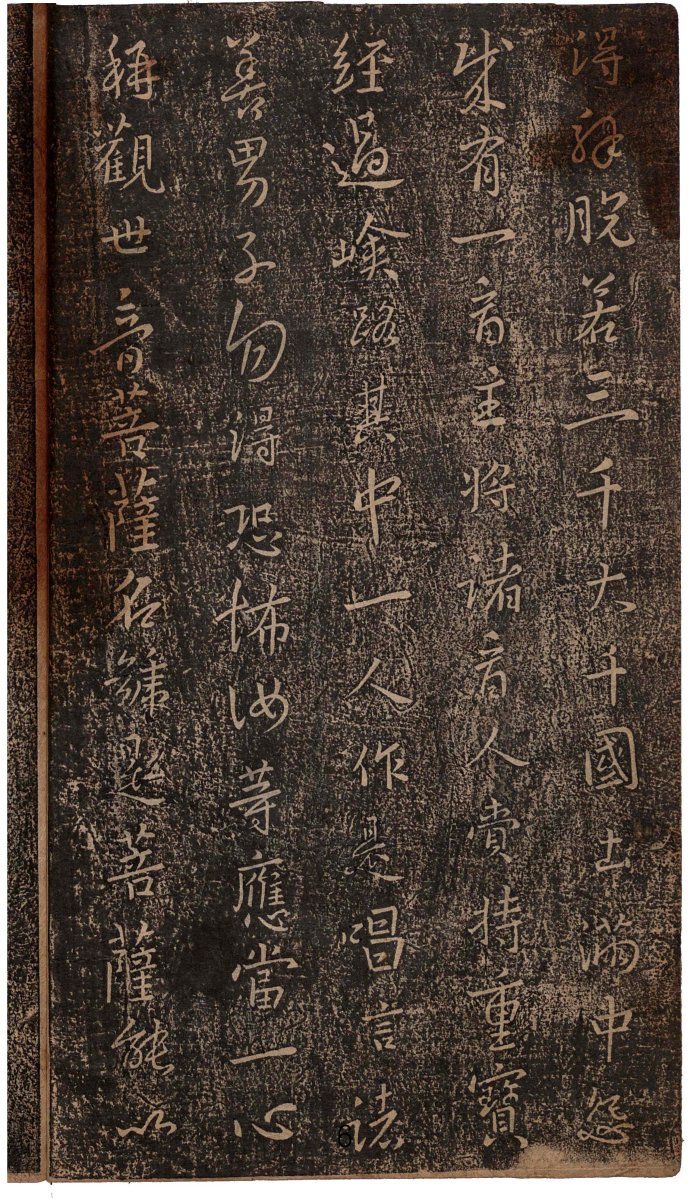 得解脫若三千大千國土滿中怨
賊有一商主將諸商人賷持重寶
經過嶮路其中一人作是唱言諸
善男子勿得恐怖汝等應當一心
稱觀世音菩薩名號是菩薩能以
6